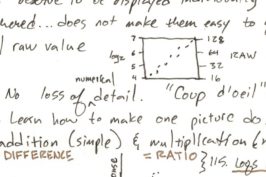 to be displayed individually
...does not make them easy to
raw value
7 128
6 64
5 32
4 16
log2
RAW
numerical
No loss of detail. "Coup d'oeil"
Learn how to make one picture do
addition (simple) & multiplication
DIFFERENCE = RATIO } vs. Logs